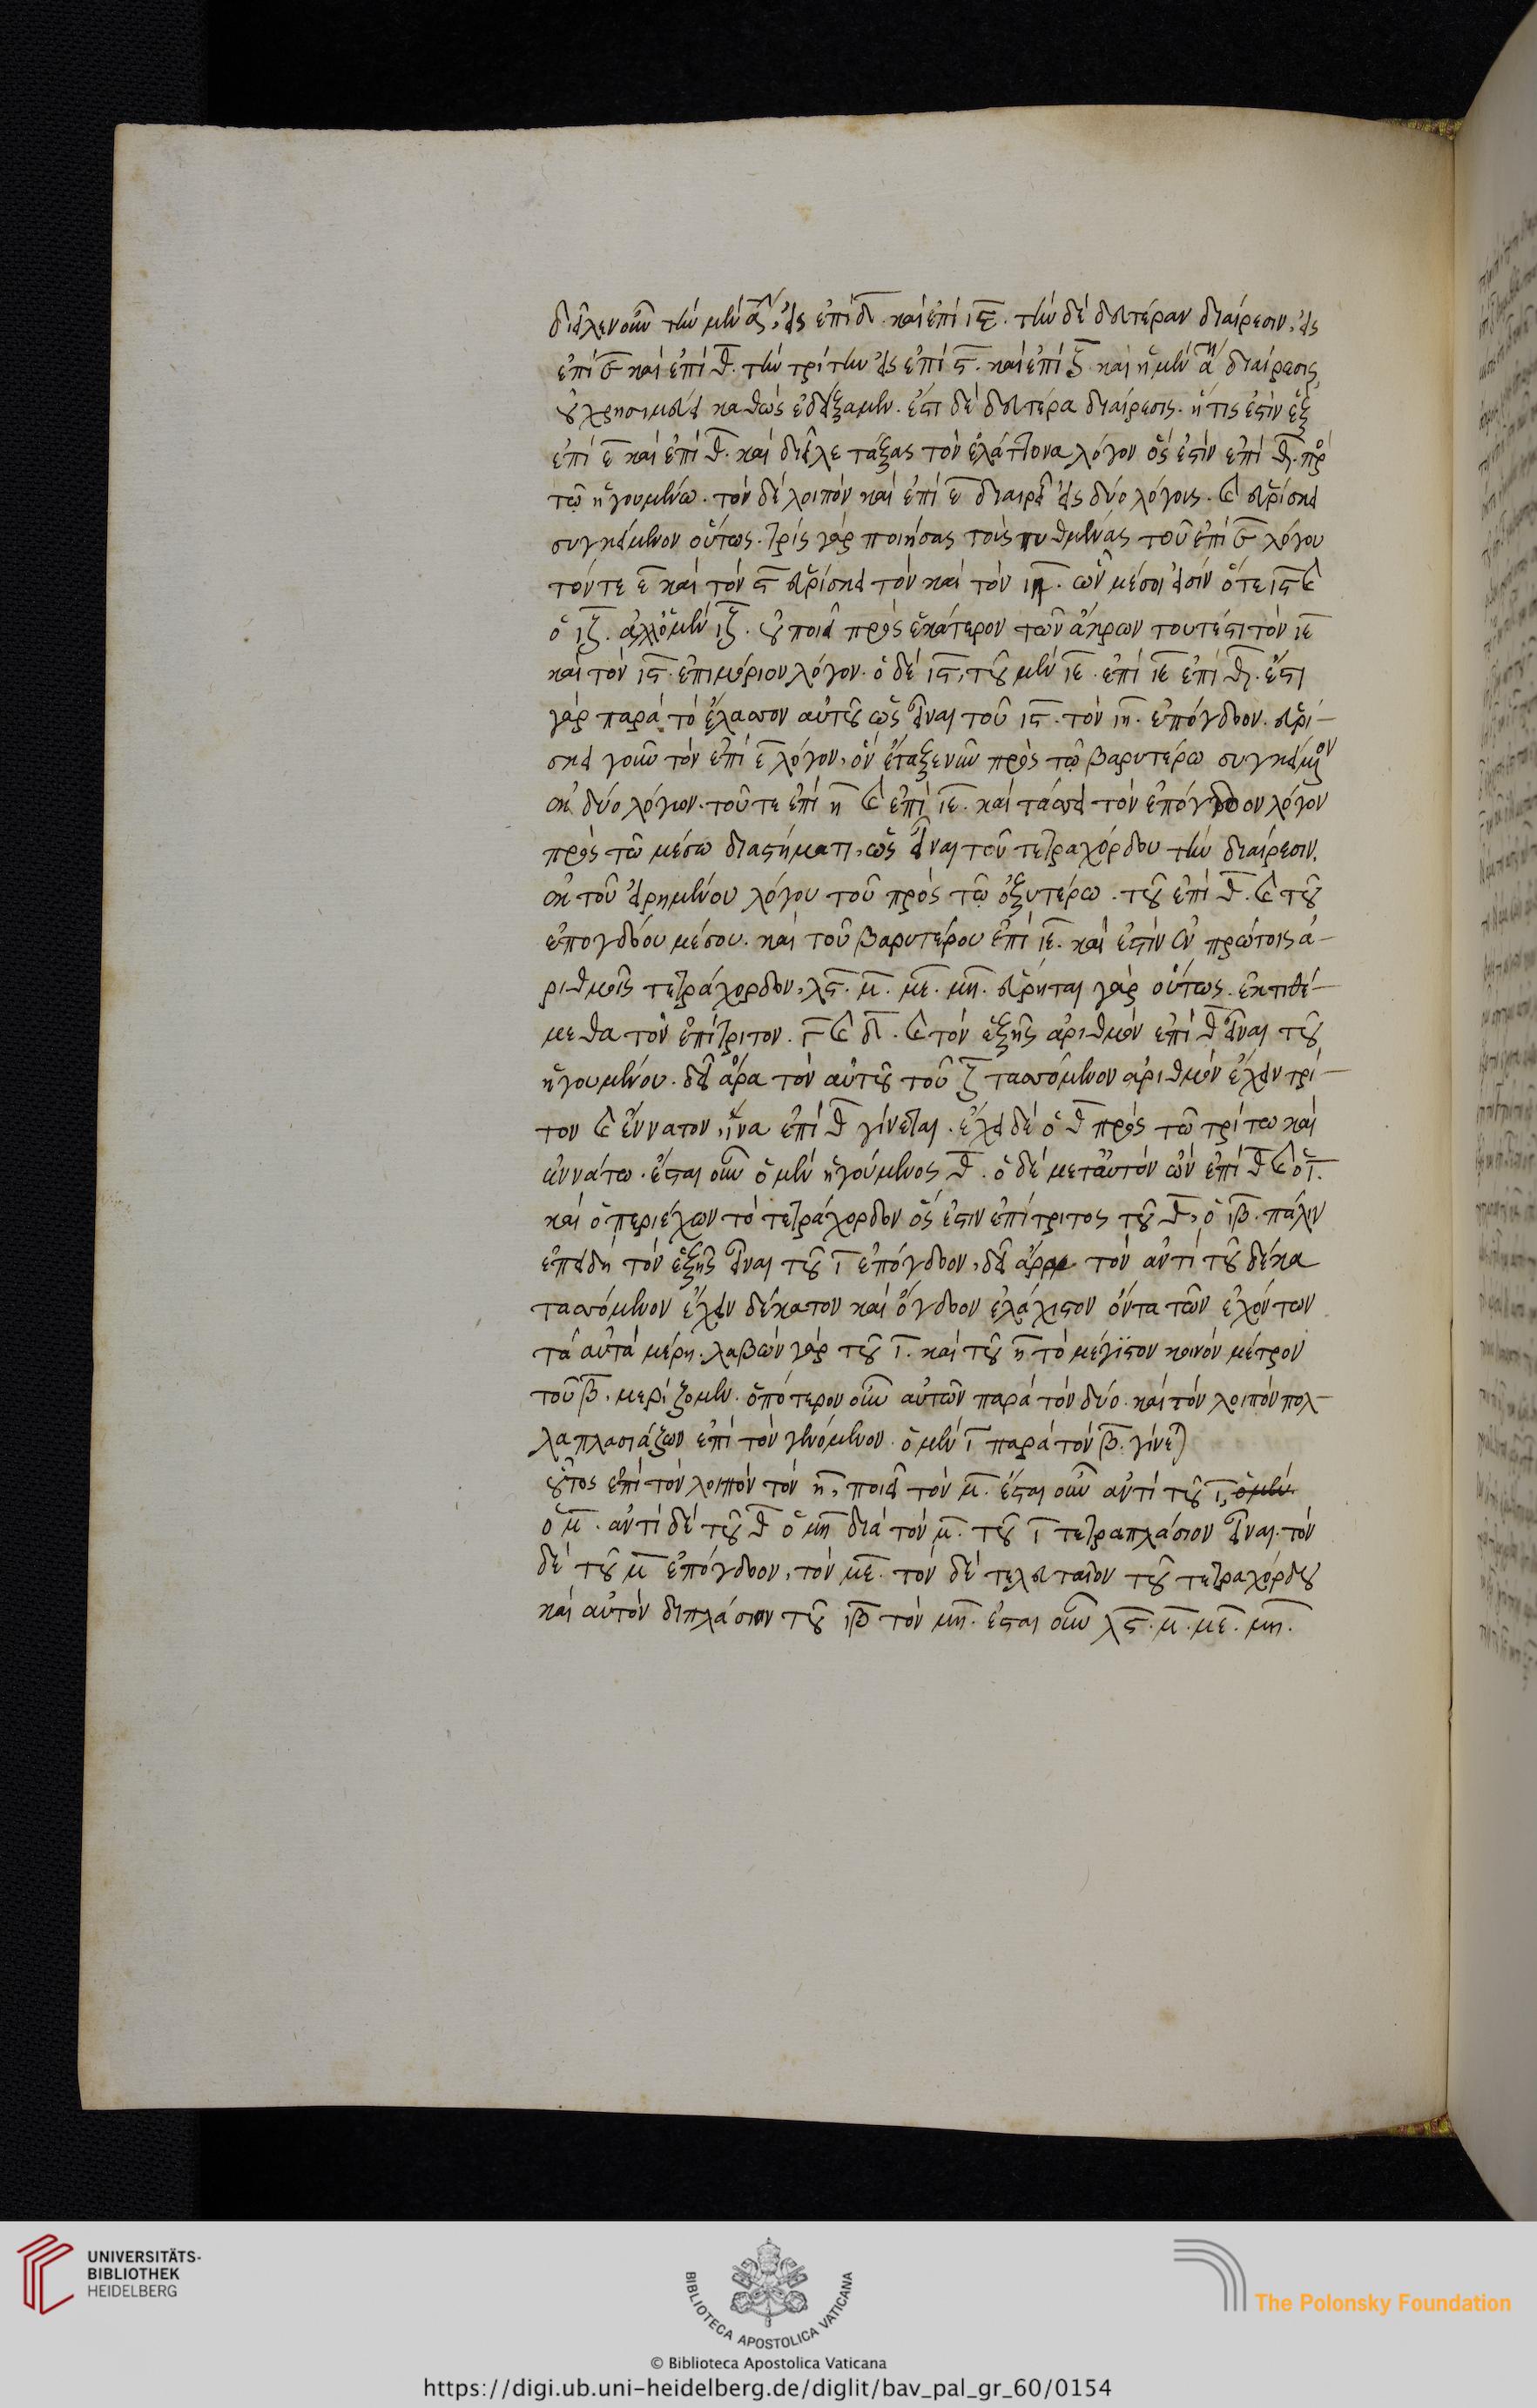 διεῖλεν οὖν τὴν μὲν α΄, εἰς ἐπὶ δ̅. καὶ ἐπὶ ιε̅. τὴν δὲ δευτέραν διαίρεσιν, εἰς
ἐπὶ ε̅ καὶ ἐπὶ θ̅. τὴν τρίτην εἰς ἐπὶ ϛ̅. καὶ ἐπὶ ζ̅. καὶ ἡ μὲν α̅η διαίρεσις
οὐ χρησιμεύει καθὼς ἐδείξαμεν. ἔστι δὲ δευτέρα διαίρεσις. ἥτις ἐστὶν ἐξ
ἐπὶ ε̅ καὶ ἐπὶ θ̅. καὶ διεῖλε τάξας τὸν ἐλάττονα λόγον ὅς ἐστὶν ἐπὶ θ̅. πρὸς
τῷ ἡγουμένω. τὸν δὲ λοιπὸν καὶ ἐπὶ ε̅ διαιρεῖ εἰς δύο λόγους. καὶ εὑρίσκει
συγκείμενον οὕτως. τρὶς γὰρ ποιήσας τοὺς πυθμένας τοῦ ἐπὶ ε̅ λόγου
τόν τε ε̅ καὶ τὸν ϛ̅ εὑρίσκει τὸν καὶ τὸν ιη̅. ὧν μέσοι εἰσὶν ὅ τε ιϛ̅ καὶ
ὁ ιζ̅. ἀλλ' ὁ μὲν ιζ̅. οὐ ποιεῖ πρὸς ἑκάτερον τῶν ἄκρων τουτέστι τὸν ιε̅
καὶ τὸν ιϛ̅. ἐπιμόριον λόγον. ὁ δὲ ιϛ̅, τοῦ μὲν ιε̅. ἐπὶ ιε̅ ἐπὶ θ̅. ἔστι
γὰρ παρὰ τὸ ἔλασσον αὐτοῦ ὡς εἶναι τοῦ ιϛ̅. τὸν ιη̅. ἐπόγδοον. εὑρί-
σκει γοῦν τὸν ἐπὶ ε̅ λόγον, ὃν ἔταξεν πρὸς τῷ βαρυτέρω συγκείμενον
ἐκ δύο λόγων. τοῦ τε ἐπὶ η̅ καὶ ἐπὶ ιε̅. καὶ τάσσει τὸν ἐπόγδοον λόγον
πρὸς τῷ μέσω διαστήματι, ὡς εἶναι τοῦ τετραχόρδου τὴν διαίρεσιν.
ἐκ τοῦ εἰρημένου λόγου τοῦ πρὸς τῷ ὀξυτέρω. τοῦ ἐπὶ θ̅. καὶ τοῦ
ἐπογδόου μέσου. καὶ τοῦ βαρυτέρου ἐπὶ ιε̅. καὶ ἐστὶν ἐν πρώτοις ἀ-
ριθμοῖς τετράχορδον, λϛ̅. μ̅. με̅. μη̅. εὕρηται γὰρ οὕτως. ἐκτιθέ-
μεθα τὸν ἐπίτριτον. γ̅ καὶ δ̅. καὶ τὸν ἑξῆς ἀριθμὸν ἐπὶ θ̅ εἶναι τοῦ
ἡγουμένου. δεῖ ἄρα τὸν αὐτοῦ τοῦ ζ̅ τασσόμενον ἀριθμὸν ἔχειν τρί-
τον καὶ ἔννατον, ἵνα ἐπὶ θ̅ γίνεται. ἔχει δὲ ὁ θ̅ πρὸς τῷ τρίτω καὶ
ἐννάτω. ἔσται οὖν ὁ μὲν ἡγούμενος θ̅. ὁ δὲ μεταὐτὸν ὢν ἐπὶ θ̅ καὶ ὁ ι̅.
καὶ ὁ περιέχων τὸ τετράχορδον ὅς ἐστιν ἐπίτριτος τοῦ θ̅, ὁ ιβ̅. πάλιν
ἐπειδὴ τὸν ἑξῆς εἶναι τοῦ ι̅ ἐπόγδοον, δεῖ ἄρα τὸν ἀντὶ τοῦ δέκα
τασσόμενον ἔχειν δέκατον καὶ ὄγδοον ἐλάχιστον ὄντα τῶν ἐχόντων
τὰ αὐτὰ μέρη. λαβὼν γὰρ τοῦ ι̅. καὶ τοῦ η̅ τὸ μέγιστον κοινὸν μέτρον
τοῦ β̅. μερίζομεν. ὁπότερον οὖν αὐτῶν παρὰ τὸν δύο. καὶ τὸν λοιπὸν πολ-
λαπλασιάζων ἐπὶ τὸν γενόμενον. ὁ μὲν ι̅ παρὰ τὸν β̅. γίνεται
οὗτος ἐπὶ τὸν λοιπὸν τὸν η̅, ποιεῖ τὸν μ̅. ἔσται οὖν ἀντὶ τοῦ ι̅, ὁ μὲν
ὁ μ̅. ἀντὶ δὲ τοῦ θ̅ ὁ μη̅ διὰ τὸν μ̅. τοῦ ι̅ τετραπλάσιον εἶναι. τὸν
δὲ τοῦ μ̅ ἐπόγδοον, τὸν με̅. τὸν δὲ τελευταῖον τοῦ τετραχόρδου
καὶ αὐτὸν διπλάσιον τοῦ ιβ̅ τὸν μη̅. ἔσται οὖν λϛ̅. μ̅. με̅. μη̅.
UNIVERSITÄTS-
BIBLIOTHEK
HEIDELBERG
BIBLIOTECA APOSTOLICA VATICANA
The Polonsky Foundation
© Biblioteca Apostolica Vaticana
https://digi.ub.uni-heidelberg.de/diglit/bav_pal_gr_60/0154